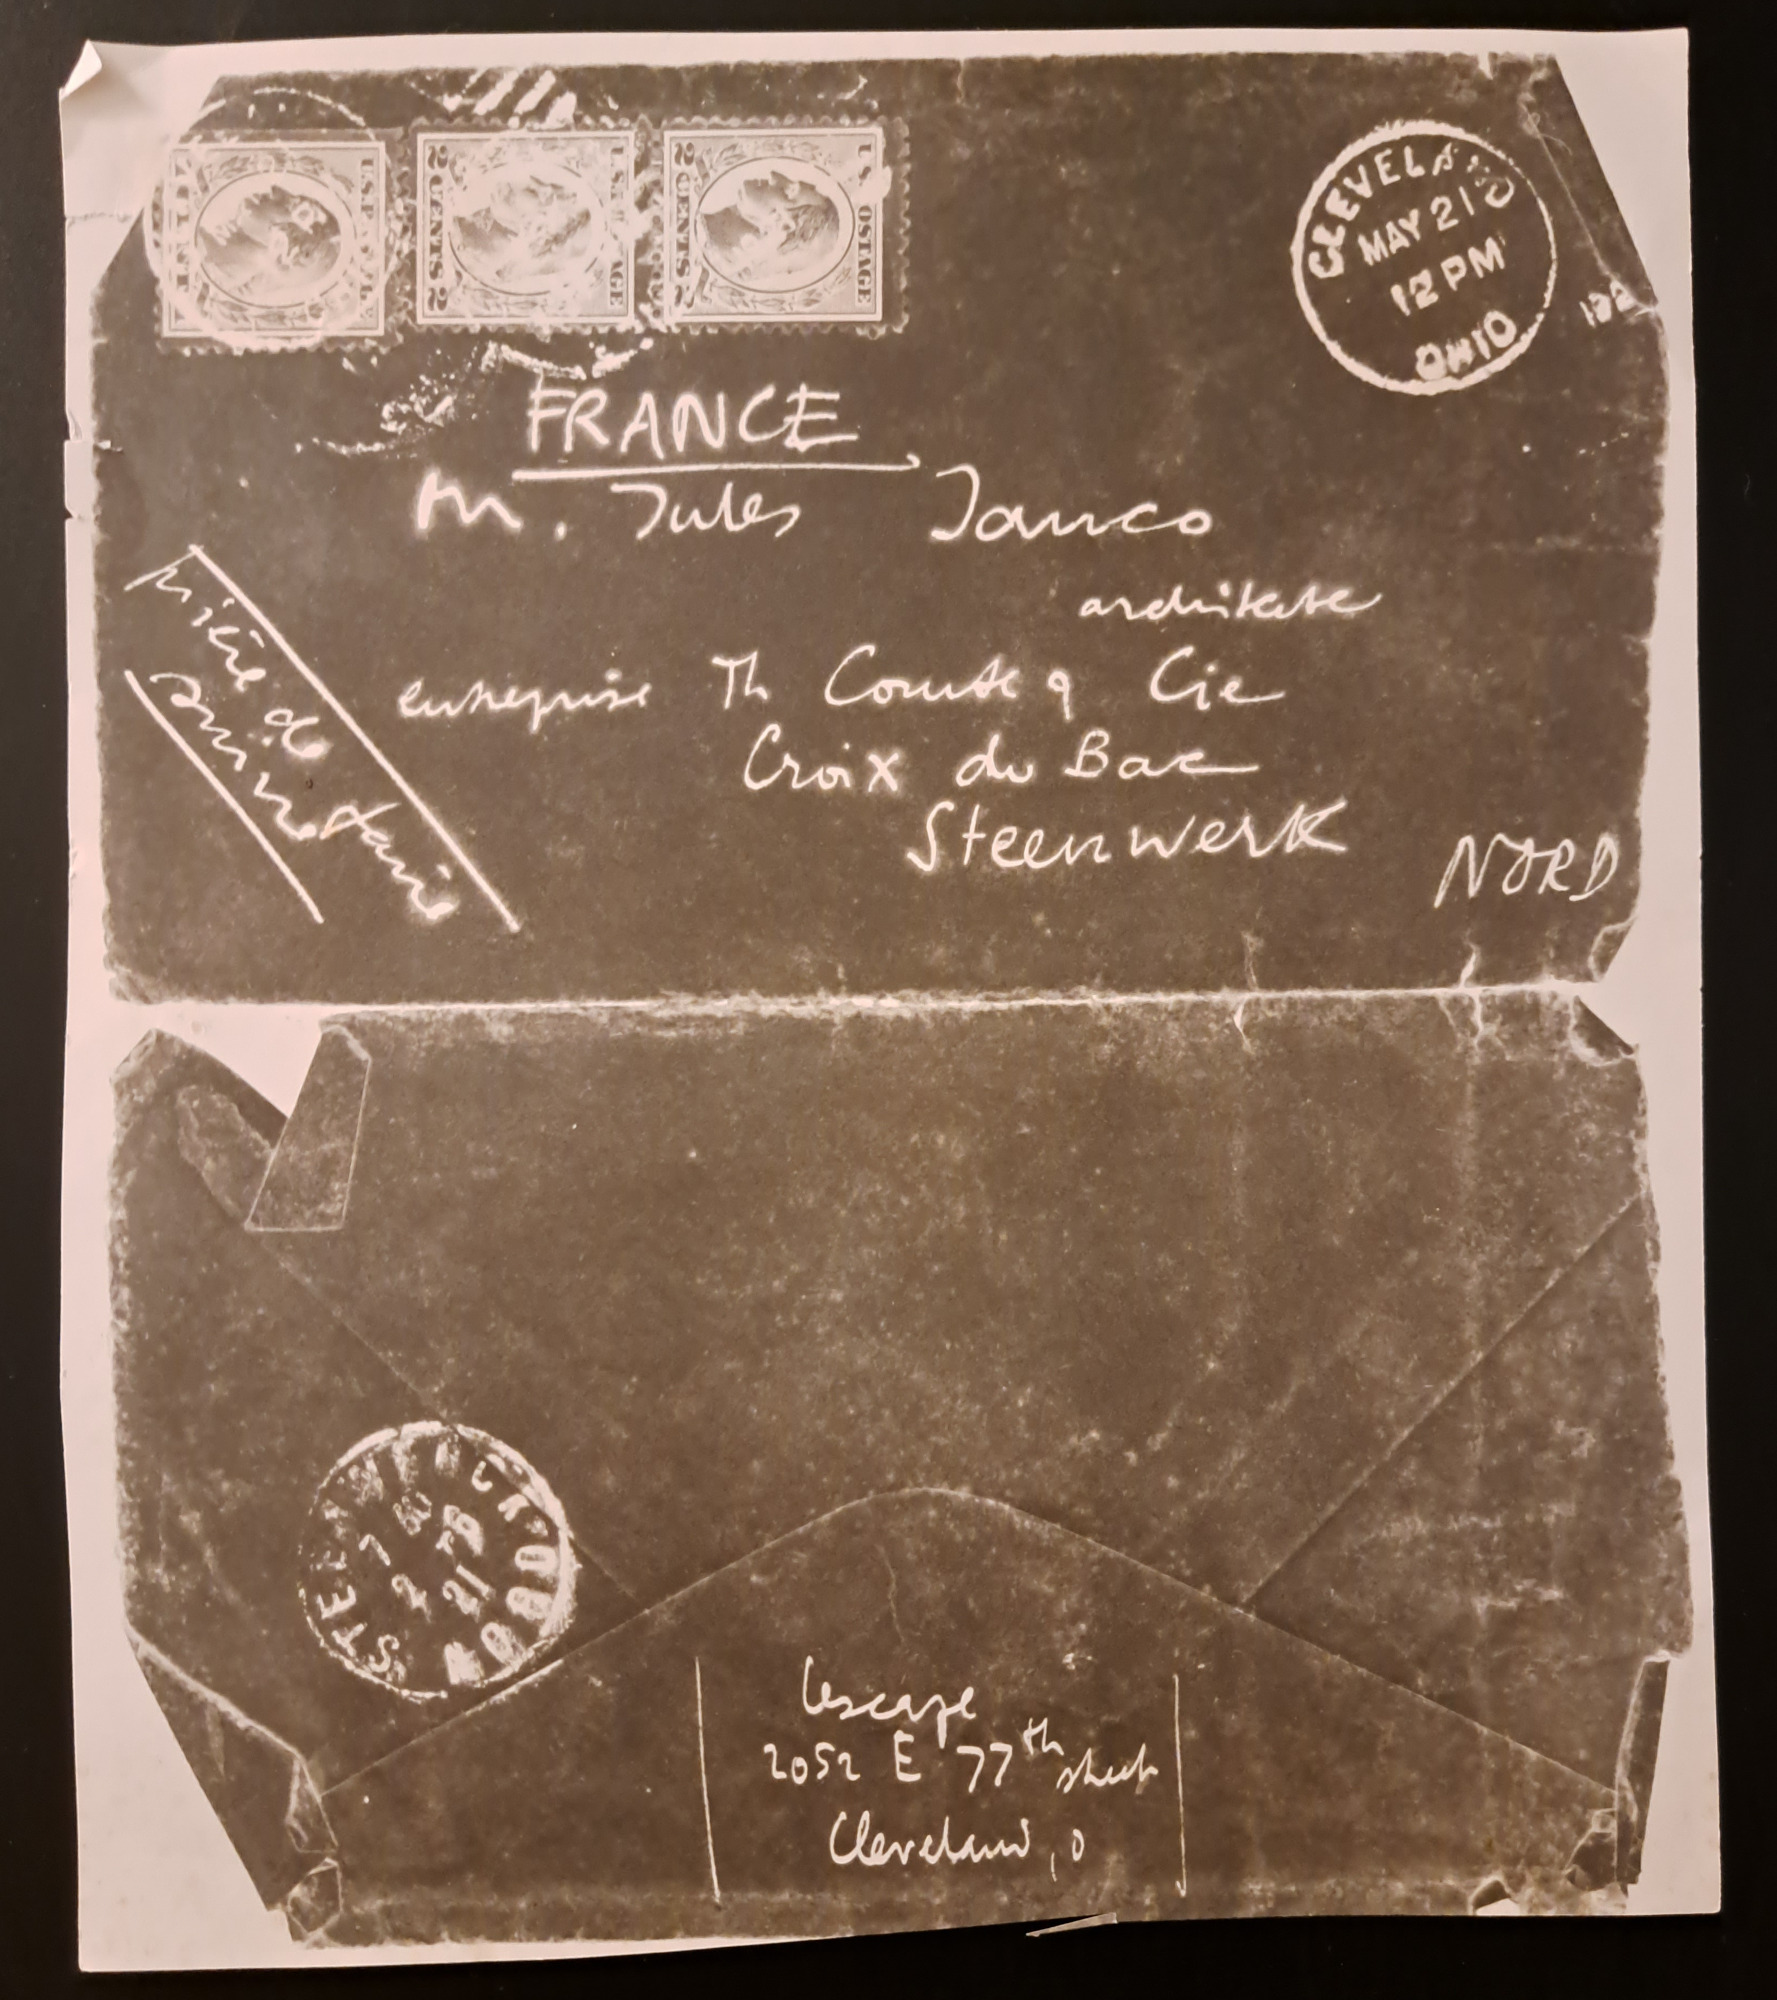 U.S. POSTAGE
2 CENTS 2
U.S. POSTAGE
2 CENTS 2
CLEVELAND
MAY 21
12 PM
OHIO
192
FRANCE
M. Jules Janco
architecte
entreprise Th Comte & Cie
Croix du Bac
Steenwerk
NORD
prière de
suivre
STEENWERCK
7
2
21
NORD
Lescaze
2052 E 77th street
Cleveland, O